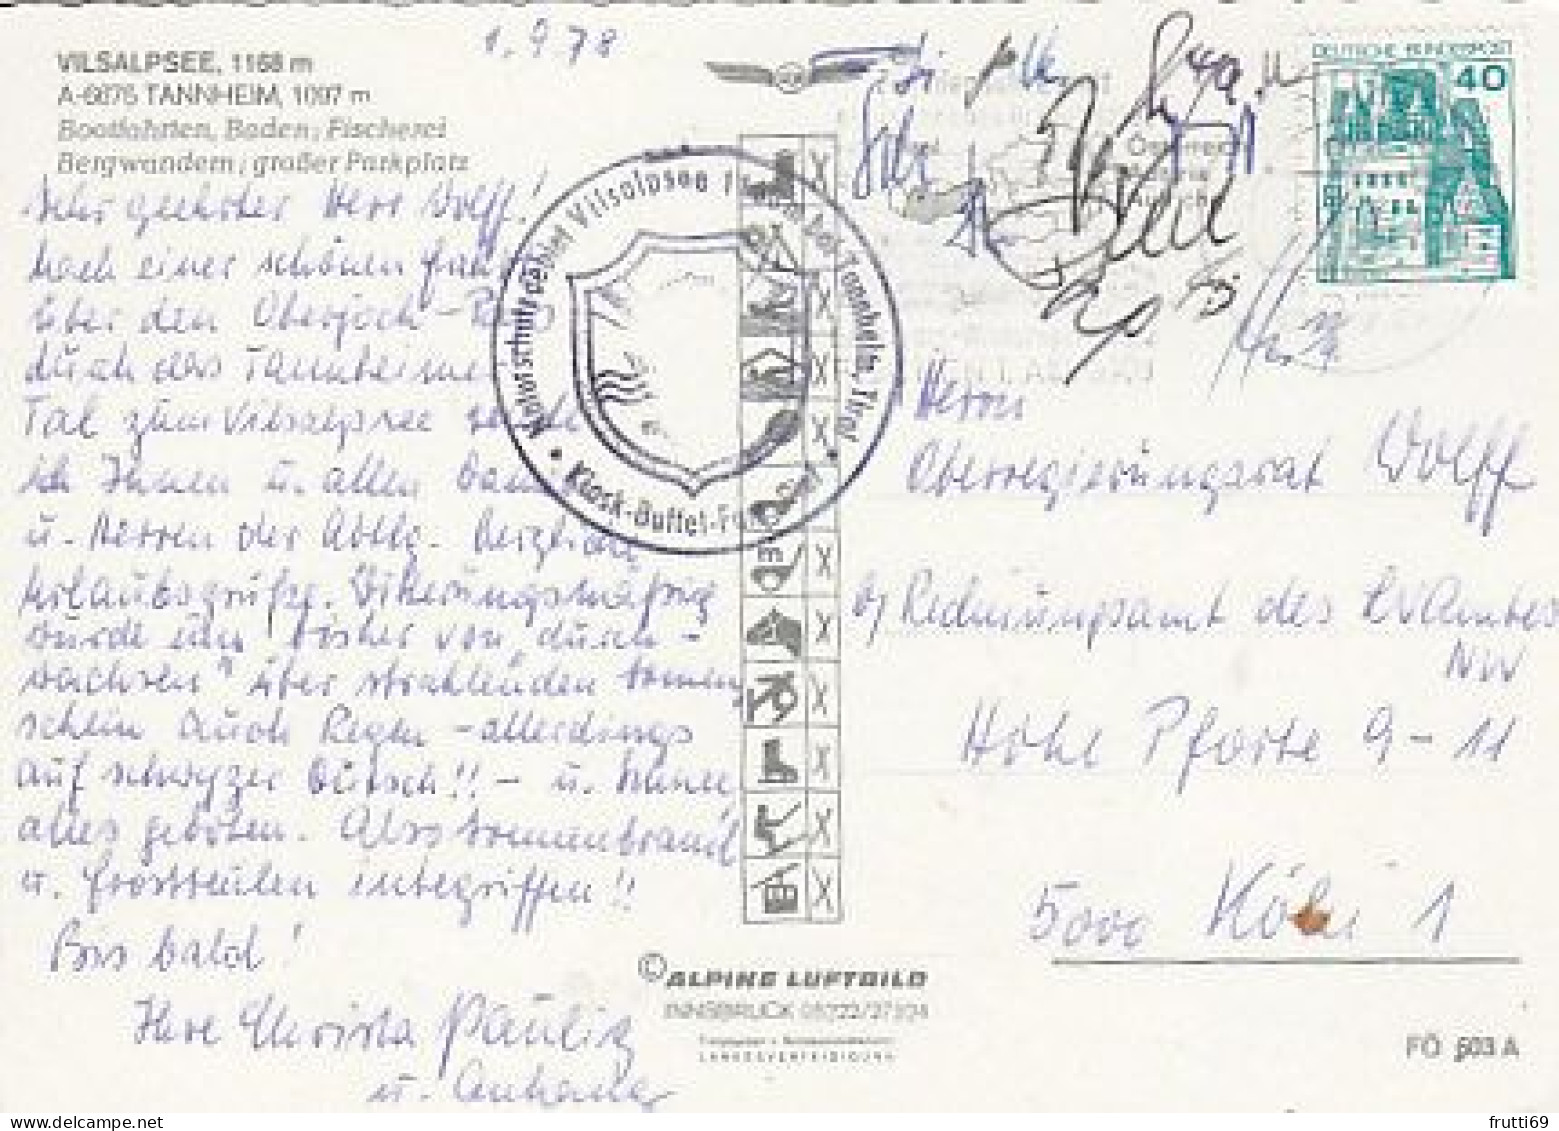 1.9.78
VILSALPSEE, 1168 m
A-6675 TANNHEIM, 1097 m
Bootfahrten, Baden, Fischerei
Bergwandern, großer Parkplatz
Sehr geehrter Herr Wolff!
Nach einer schönen Fahrt
über den Oberjoch-Pass
durch das Tannheimer
Tal zum Vilsalpsee sende
ich Ihnen u. allen Damen
u. Herren der Abtlg. herzliche
Urlaubsgrüße. Witterungsmäßig
wurde uns bisher von „durch-
wachsen" über strahlenden Sonnen
schein auch Regen - allerdings
auf schwyzer dütsch!! - u. Immer
alles geboten. Also Sonnenbrand
u. Frostbeulen inbegriffen!!
Bis bald!
Ihre Christa Paulitz
u. Anhang
Naturschutzgebiet Vilsalpsee
bei Tannheim, Tirol
Kiosk-Buffet
DEUTSCHE BUNDESPOST
40
Herrn
Oberregierungsrat Wolff
b/ Rechnungsamt des LVAmtes
NW
Hohe Pforte 9-11
5000 Köln 1
© ALPINE LUFTBILD
INNSBRUCK 05222/27304
LANDESVERTEIDIGUNG
FÖ 503 A
frutti69